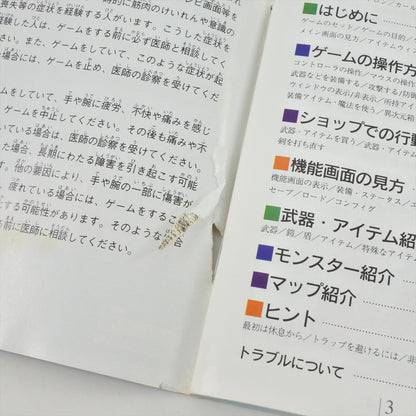 レビ画面等
時的に筋肉のけいれんや意識の
喪失等の症状を経験する人がいます。こうした症状を
経験した人は、ゲームをする前に必ず医師と相談してく
ださい。また、ゲームをしていて、このような症状が起
場合には、ゲームを止め、医師の診察を受けてくだ
ゲームをしていて、手や腕に疲労、不快や痛みを感じ
ゲームを中止してください。その後も痛みや不
ている場合は、医師の診察を受けてください。
た場合、長期にわたる障害を引き起こす可能
す。他の要因により、手や腕の一部に傷害が
疲れている場合には、ゲームをするこ
する可能性があります。そのような場合
る前に医師に相談してください。
はじめに
ゲームのセット／ゲームの目的／
メイン画面の見方／アイテムウィン
ゲームの操作方
コントローラの操作／マウスの操作
武器などを装備する／攻撃する／防御
ウィンドウの表示／非表示／所持アイ
装備アイテム・魔法を使う／異次元箱
ショップでの行動
武器・アイテムを買う／武器・アイテ
剣を打ち直す
機能画面の見方
機能画面の表示／装備・ステータス／エ
セーブ／ロード／コンフィグ
武器・アイテム紹
武器／鎧／盾／アイテム／特殊なアイテム
モンスター紹介
マップ紹介
ヒント
最初は休息から／トラップを避けるには／非
トラブルについて
3